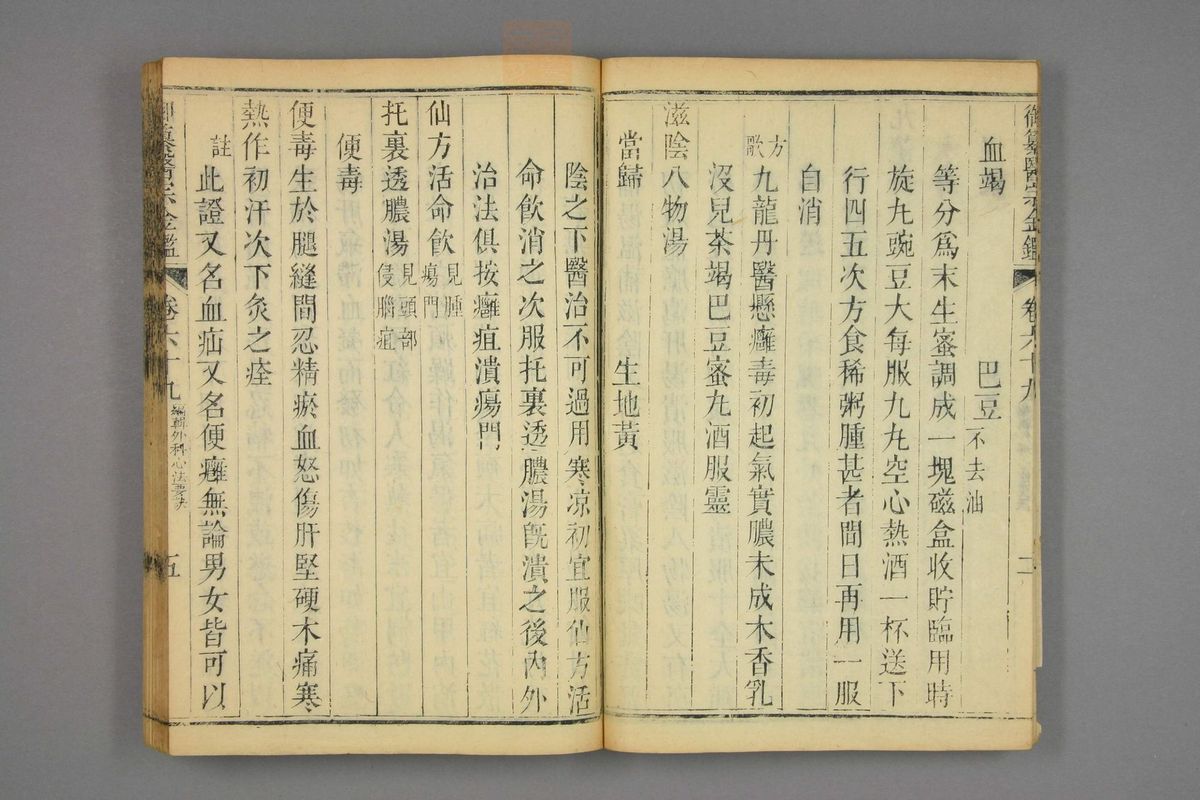 御纂醫宗金鑑 卷六十九 二
血竭 巴豆不去油
等分爲末生蜜調成一塊磁盒收貯臨用時
旋丸豌豆大每服九丸空心熱酒一杯送下
行四五次方食稀粥腫甚者間日再用一服
自消
方歌 九龍丹醫懸癰毒初起氣實膿未成木香乳
沒兒茶竭巴豆蜜丸酒服靈
滋陰八物湯
當歸 生地黃
陰之下醫治不可過用寒凉初宜服仙方活
命飲消之次服托裏透膿湯旣潰之後內外
治法俱按癰疽潰瘍門
仙方活命飲見腫瘍門
托裏透膿湯見頭部侵腦疽
便毒
便毒生於腿縫間忍精瘀血怒傷肝堅硬木痛寒
熱作初汗次下灸之痊
註 此證又名血疝又名便癰無論男女皆可以
御纂醫宗金鑑 卷六十九 編輯外科心法要訣 五